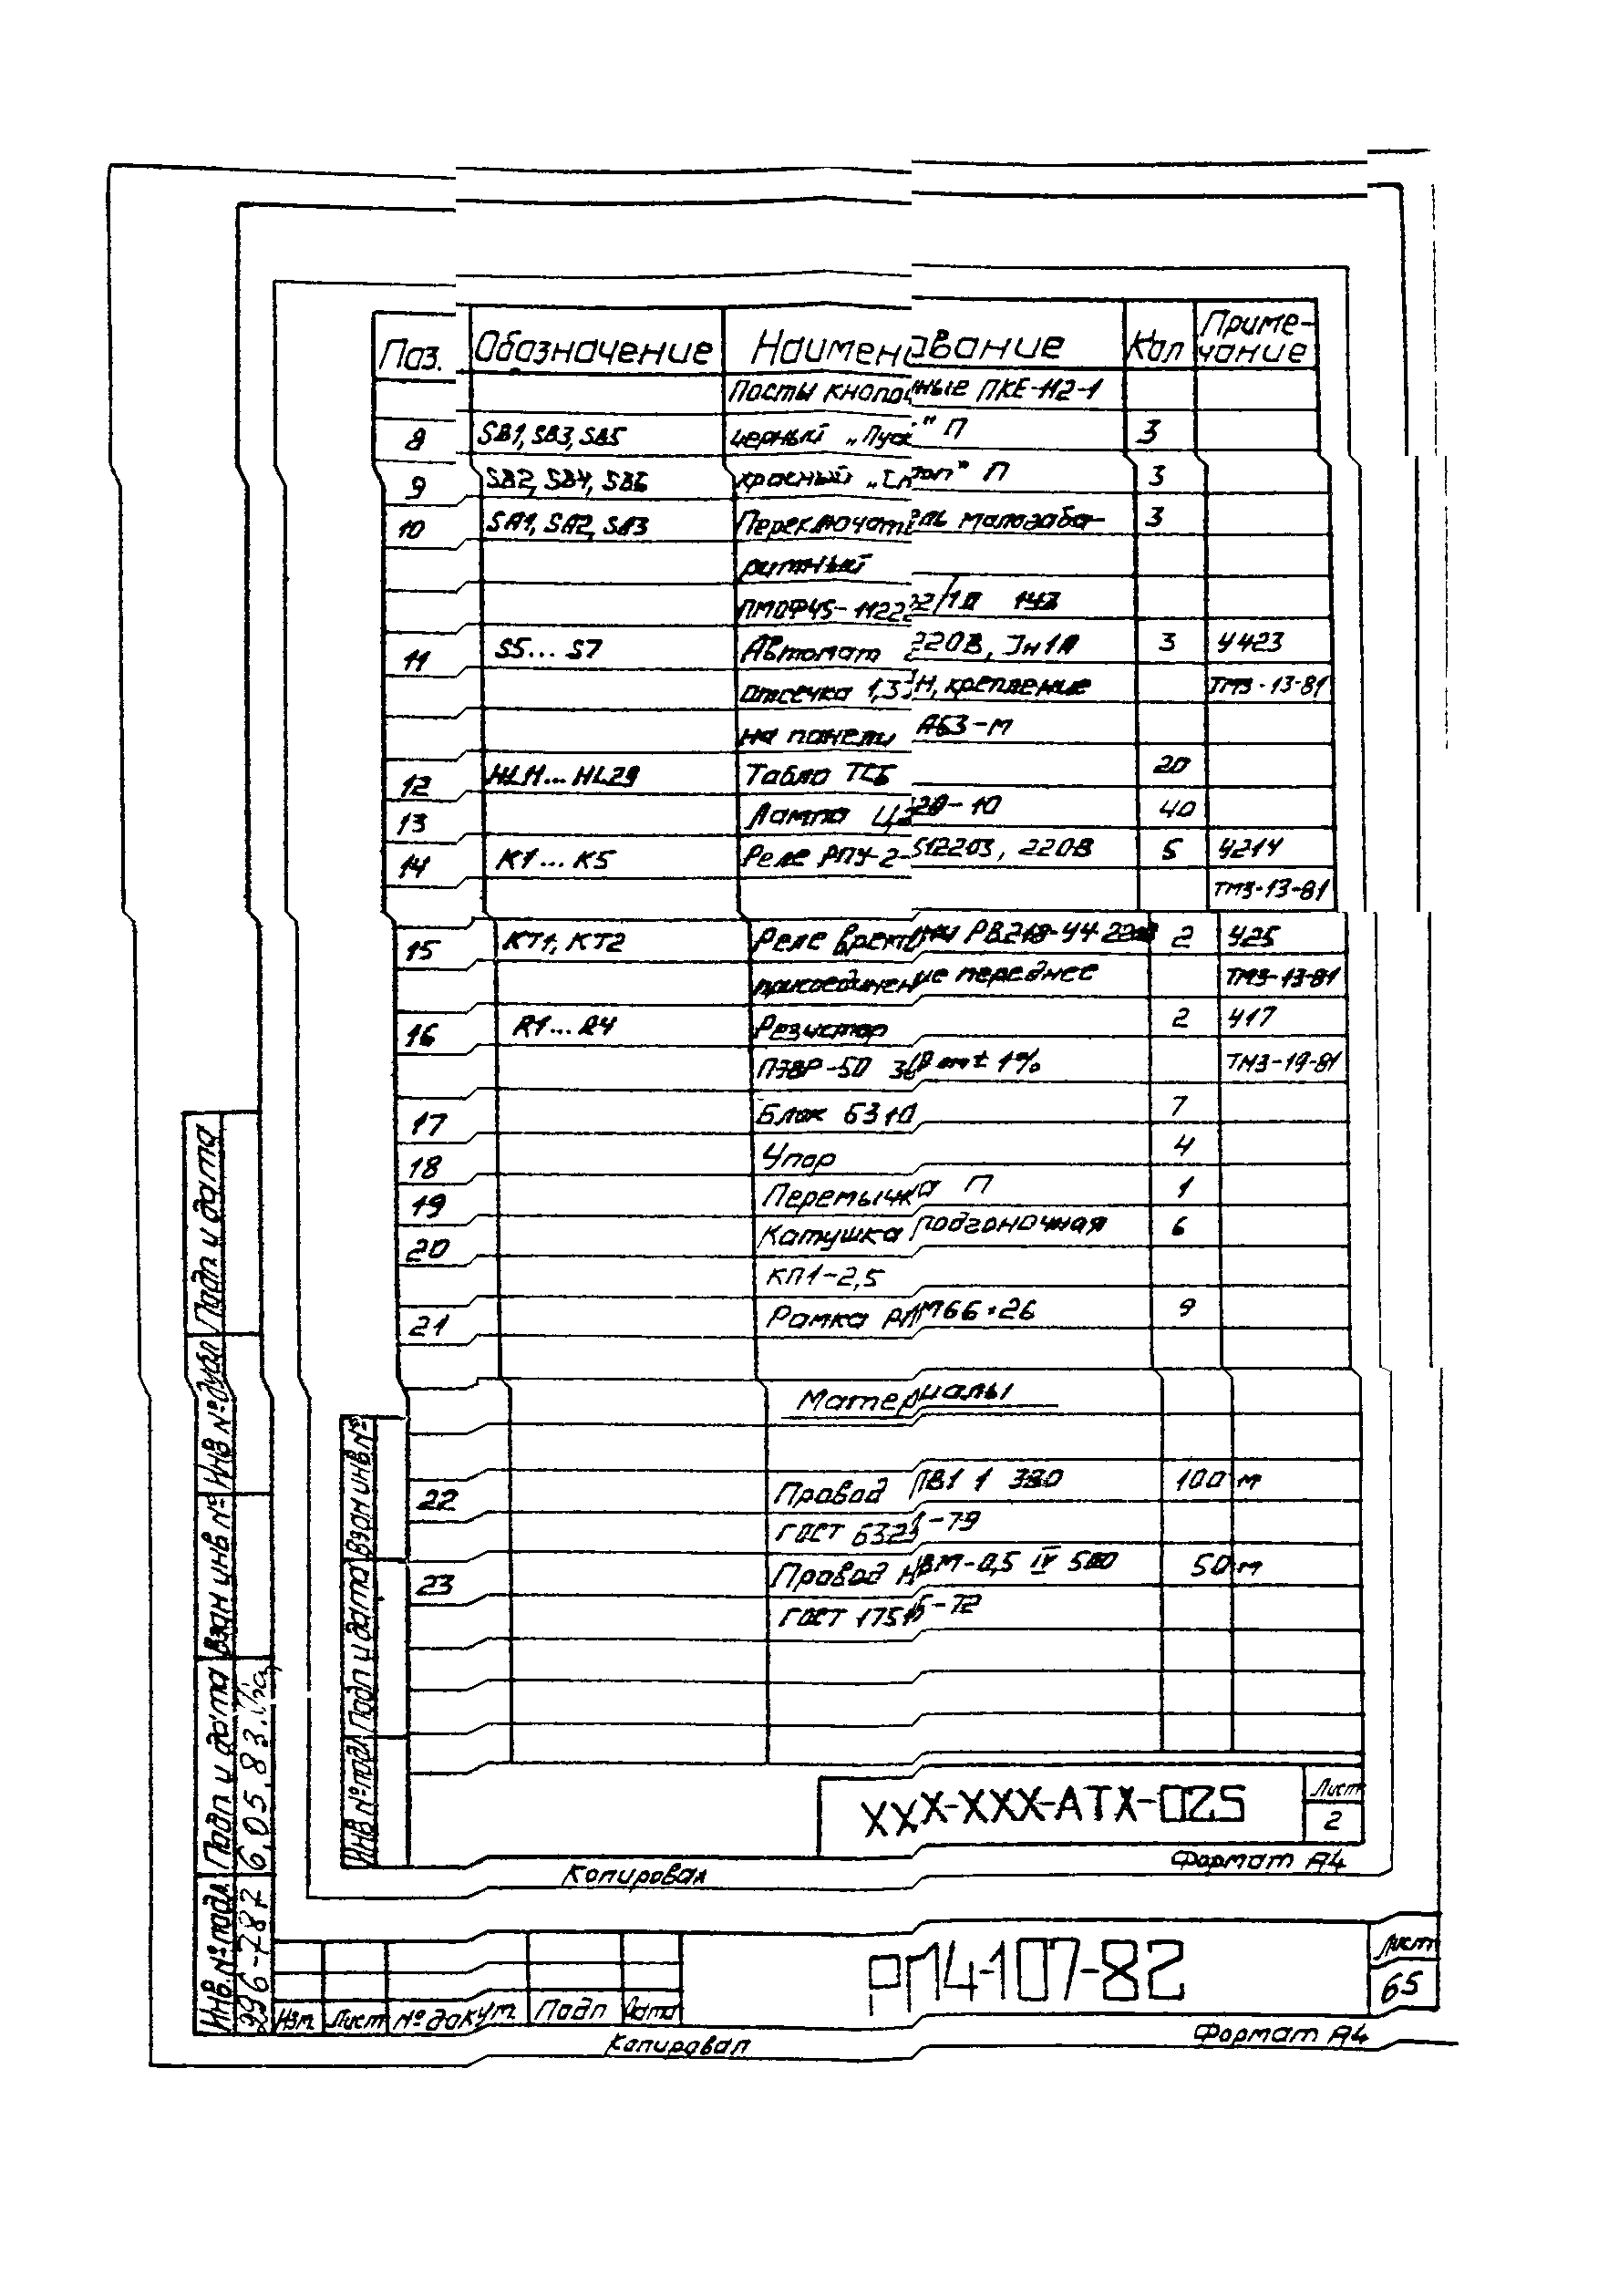 Поз. Обозначение Наименование Кол Приме-
чание
Посты кнопочные ПКЕ-112-1
8 SB1, SB3, SB5 черный „Пуск" П 3
9 SB2, SB4, SB6 красный „Стоп" П 3
10 SA1, SA2, SA3 Переключатель малогаба- 3
ритный
ПМОФ45-112222/1Д
11 S5... S7 Автомат 220В, Iн1А 3 У423
отсечка 1,3Iн, крепление ТМ3-13-81
на панели А63-м
12 HL11... HL29 Табло ТСБ 20
13 Лампа Ц220-10 40
14 К1... К5 Реле РПУ-2- 512203, 220В 5 У214
ТМ3-13-81
15 КТ1, КТ2 Реле времени РВ218-У4 2 У25
присоединение переднее ТМ3-13-81
16 R1... R4 Резистор 2 У17
ПЭВР-50 ± 1% ТМ3-19-81
17 Блок Б310 7
18 Упор 4
19 Перемычка П 1
20 Катушка подгоночная 6
КП1-2,5
21 Рамка РПМ 66×26 9
Материалы
22 Провод ПВ1 1 380 100 м
ГОСТ 6323-79
23 Провод НВМ-0,5 IV 500 50 м
ГОСТ 17515-72
ХХХ-ХХХ-АТХ-025 Лист
2
Инв № подл Подп и дата Взам инв №
Копировал Формат А4
Инв. № подл. Подп и дата Взам инв № Инв № дубл Подп и дата
6.05.83
Изм Лист № докум. Подп Дата
РМ4-107-82 Лист
65
Копировал Формат А4